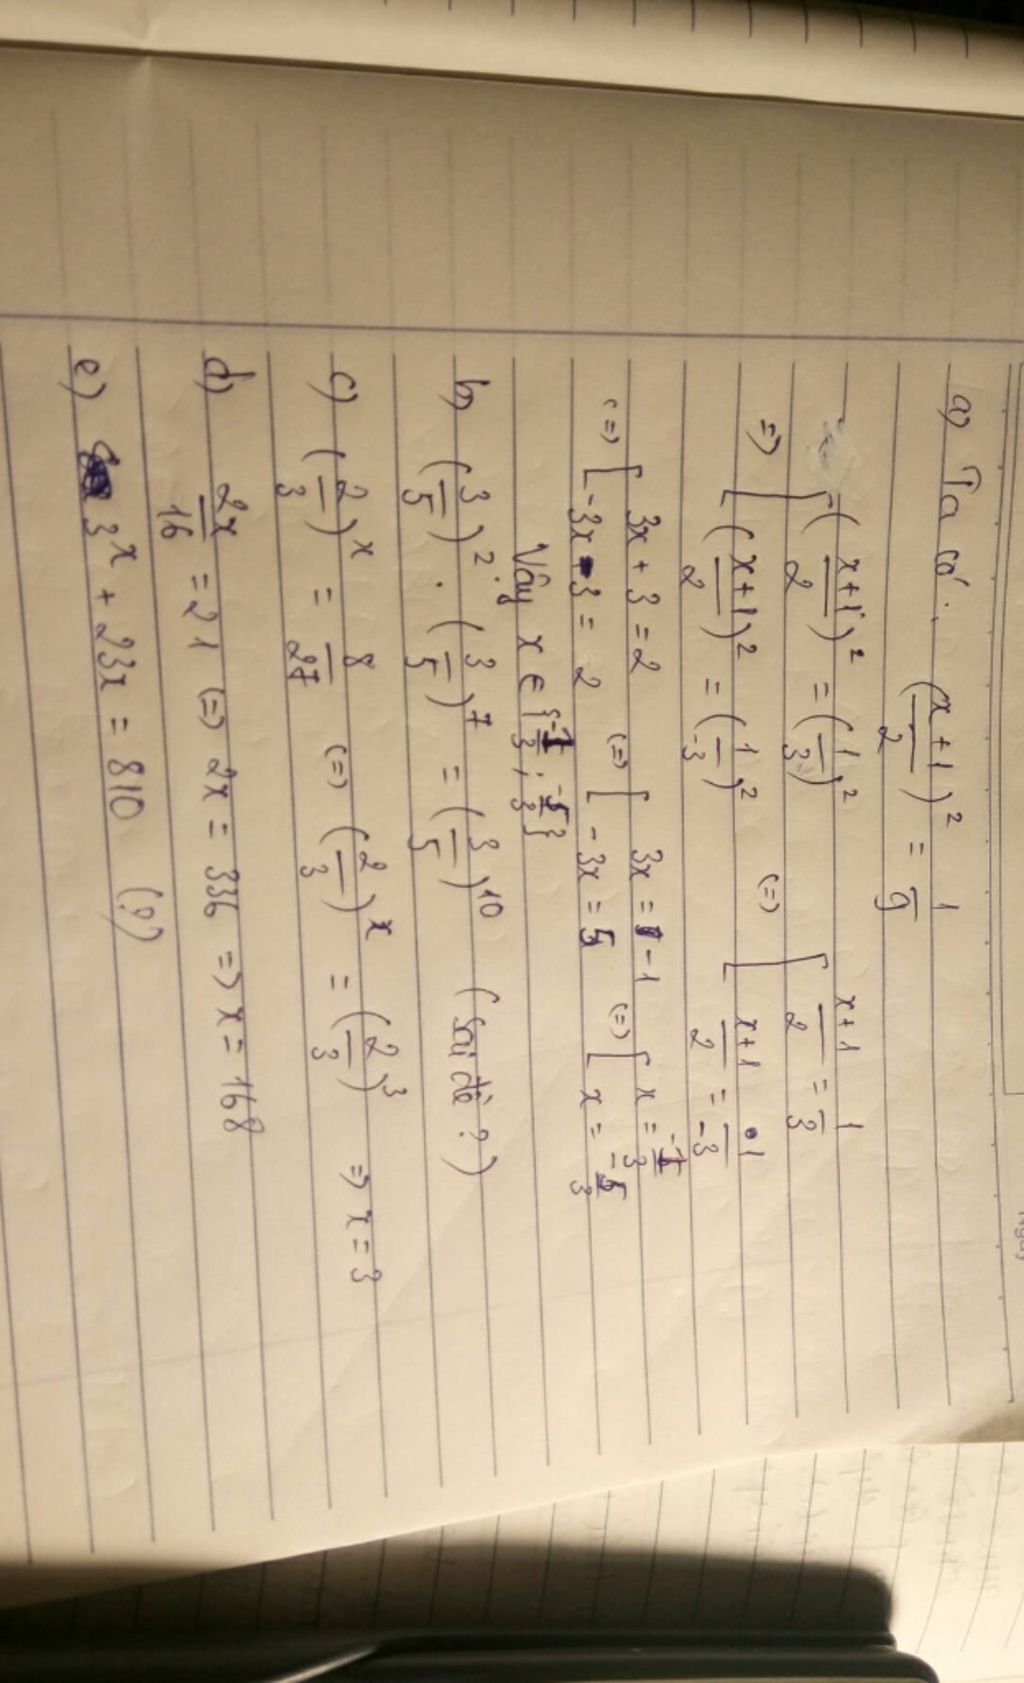 a) Ta có: (x+1/2)² = 1/9
=> [ (x+1/2)² = (1/3)² <=> [ x+1/2 = 1/3
(x+1/2)² = (1/-3)² x+1/2 = 1/-3
<=> [ 3x + 3 = 2 <=> [ 3x = -1 <=> [ x = -1/3
-3x - 3 = 2 -3x = 5 x = -5/3
Vậy x ∈ {-1/3; -5/3}
b) (3/5)² . (3/5)⁷ = (3/5)¹⁰ (Sai đề?)
c) (2/3)ˣ = 8/27 <=> (2/3)ˣ = (2/3)³ => x = 3
d) 2x/16 = 21 <=> 2x = 336 => x = 168
e) 3ˣ + 23x = 810 (?)